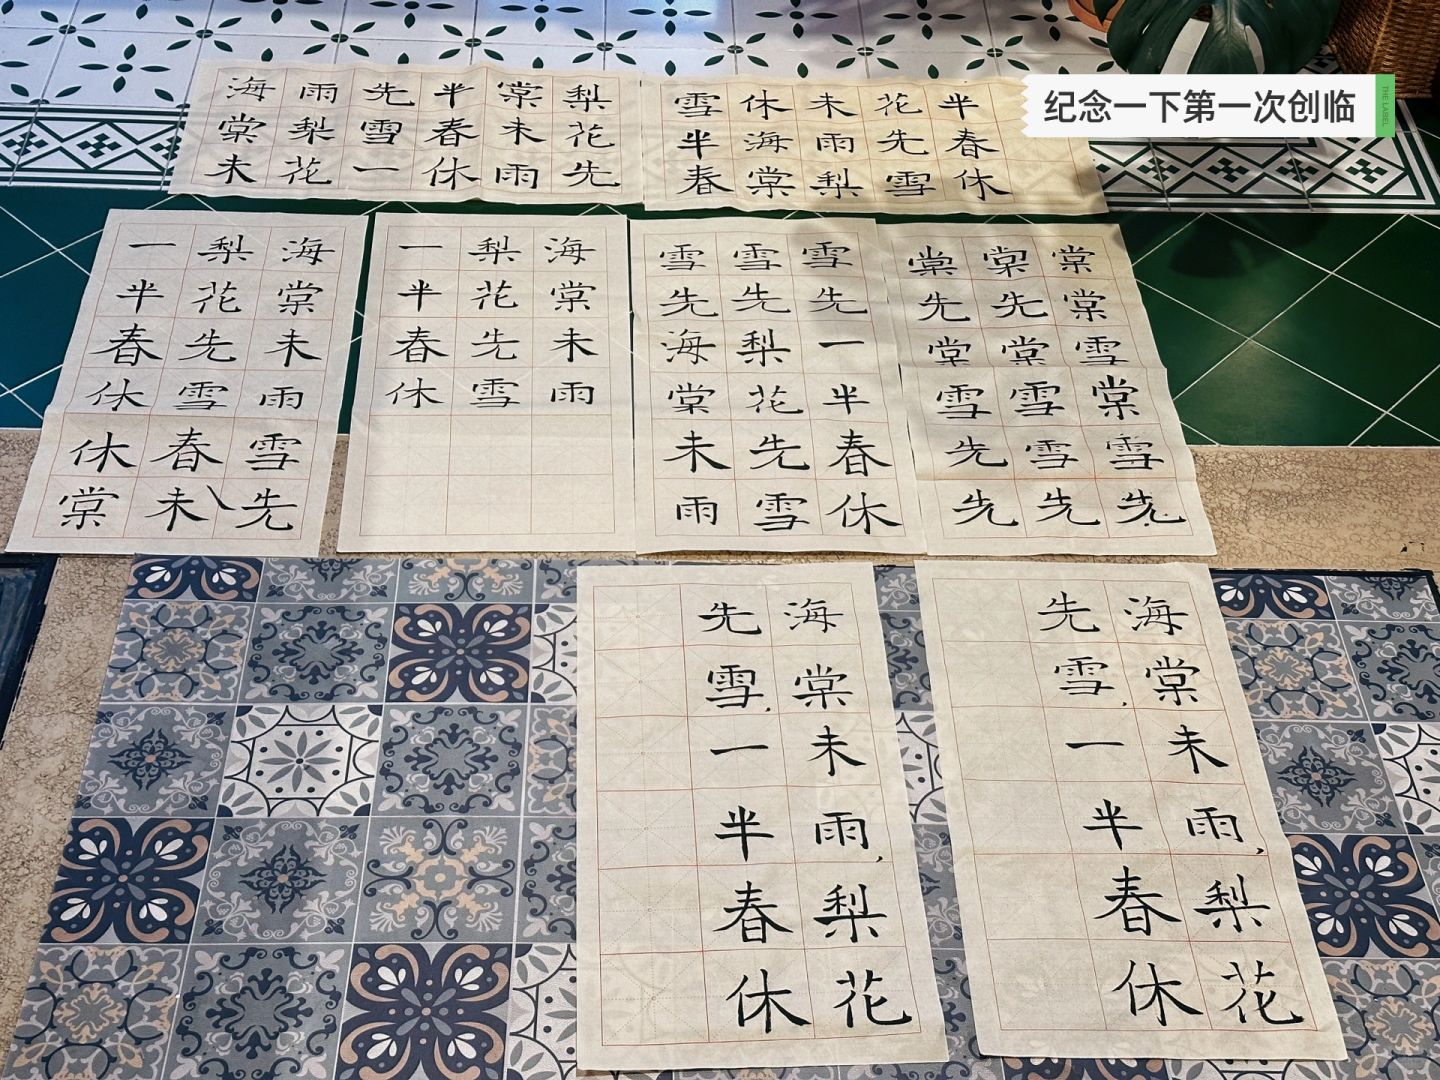 纪念一下第一次创临
THE LABEL
海棠未
雨梨花
先雪一
半春休
棠未雨
梨花先
雪半春
休海棠
未雨梨
花先雪
半春休
海棠未雨雪先
梨花先雪春未
一半春休休棠
海棠未雨
梨花先雪
一半春休
雪先一半春休
雪先梨花先雪
雪先海棠未雨
棠棠雪棠雪先
棠先棠雪雪先
棠先棠雪先先
海棠未雨，梨花
先雪，一半春休
海棠未雨，梨花
先雪，一半春休